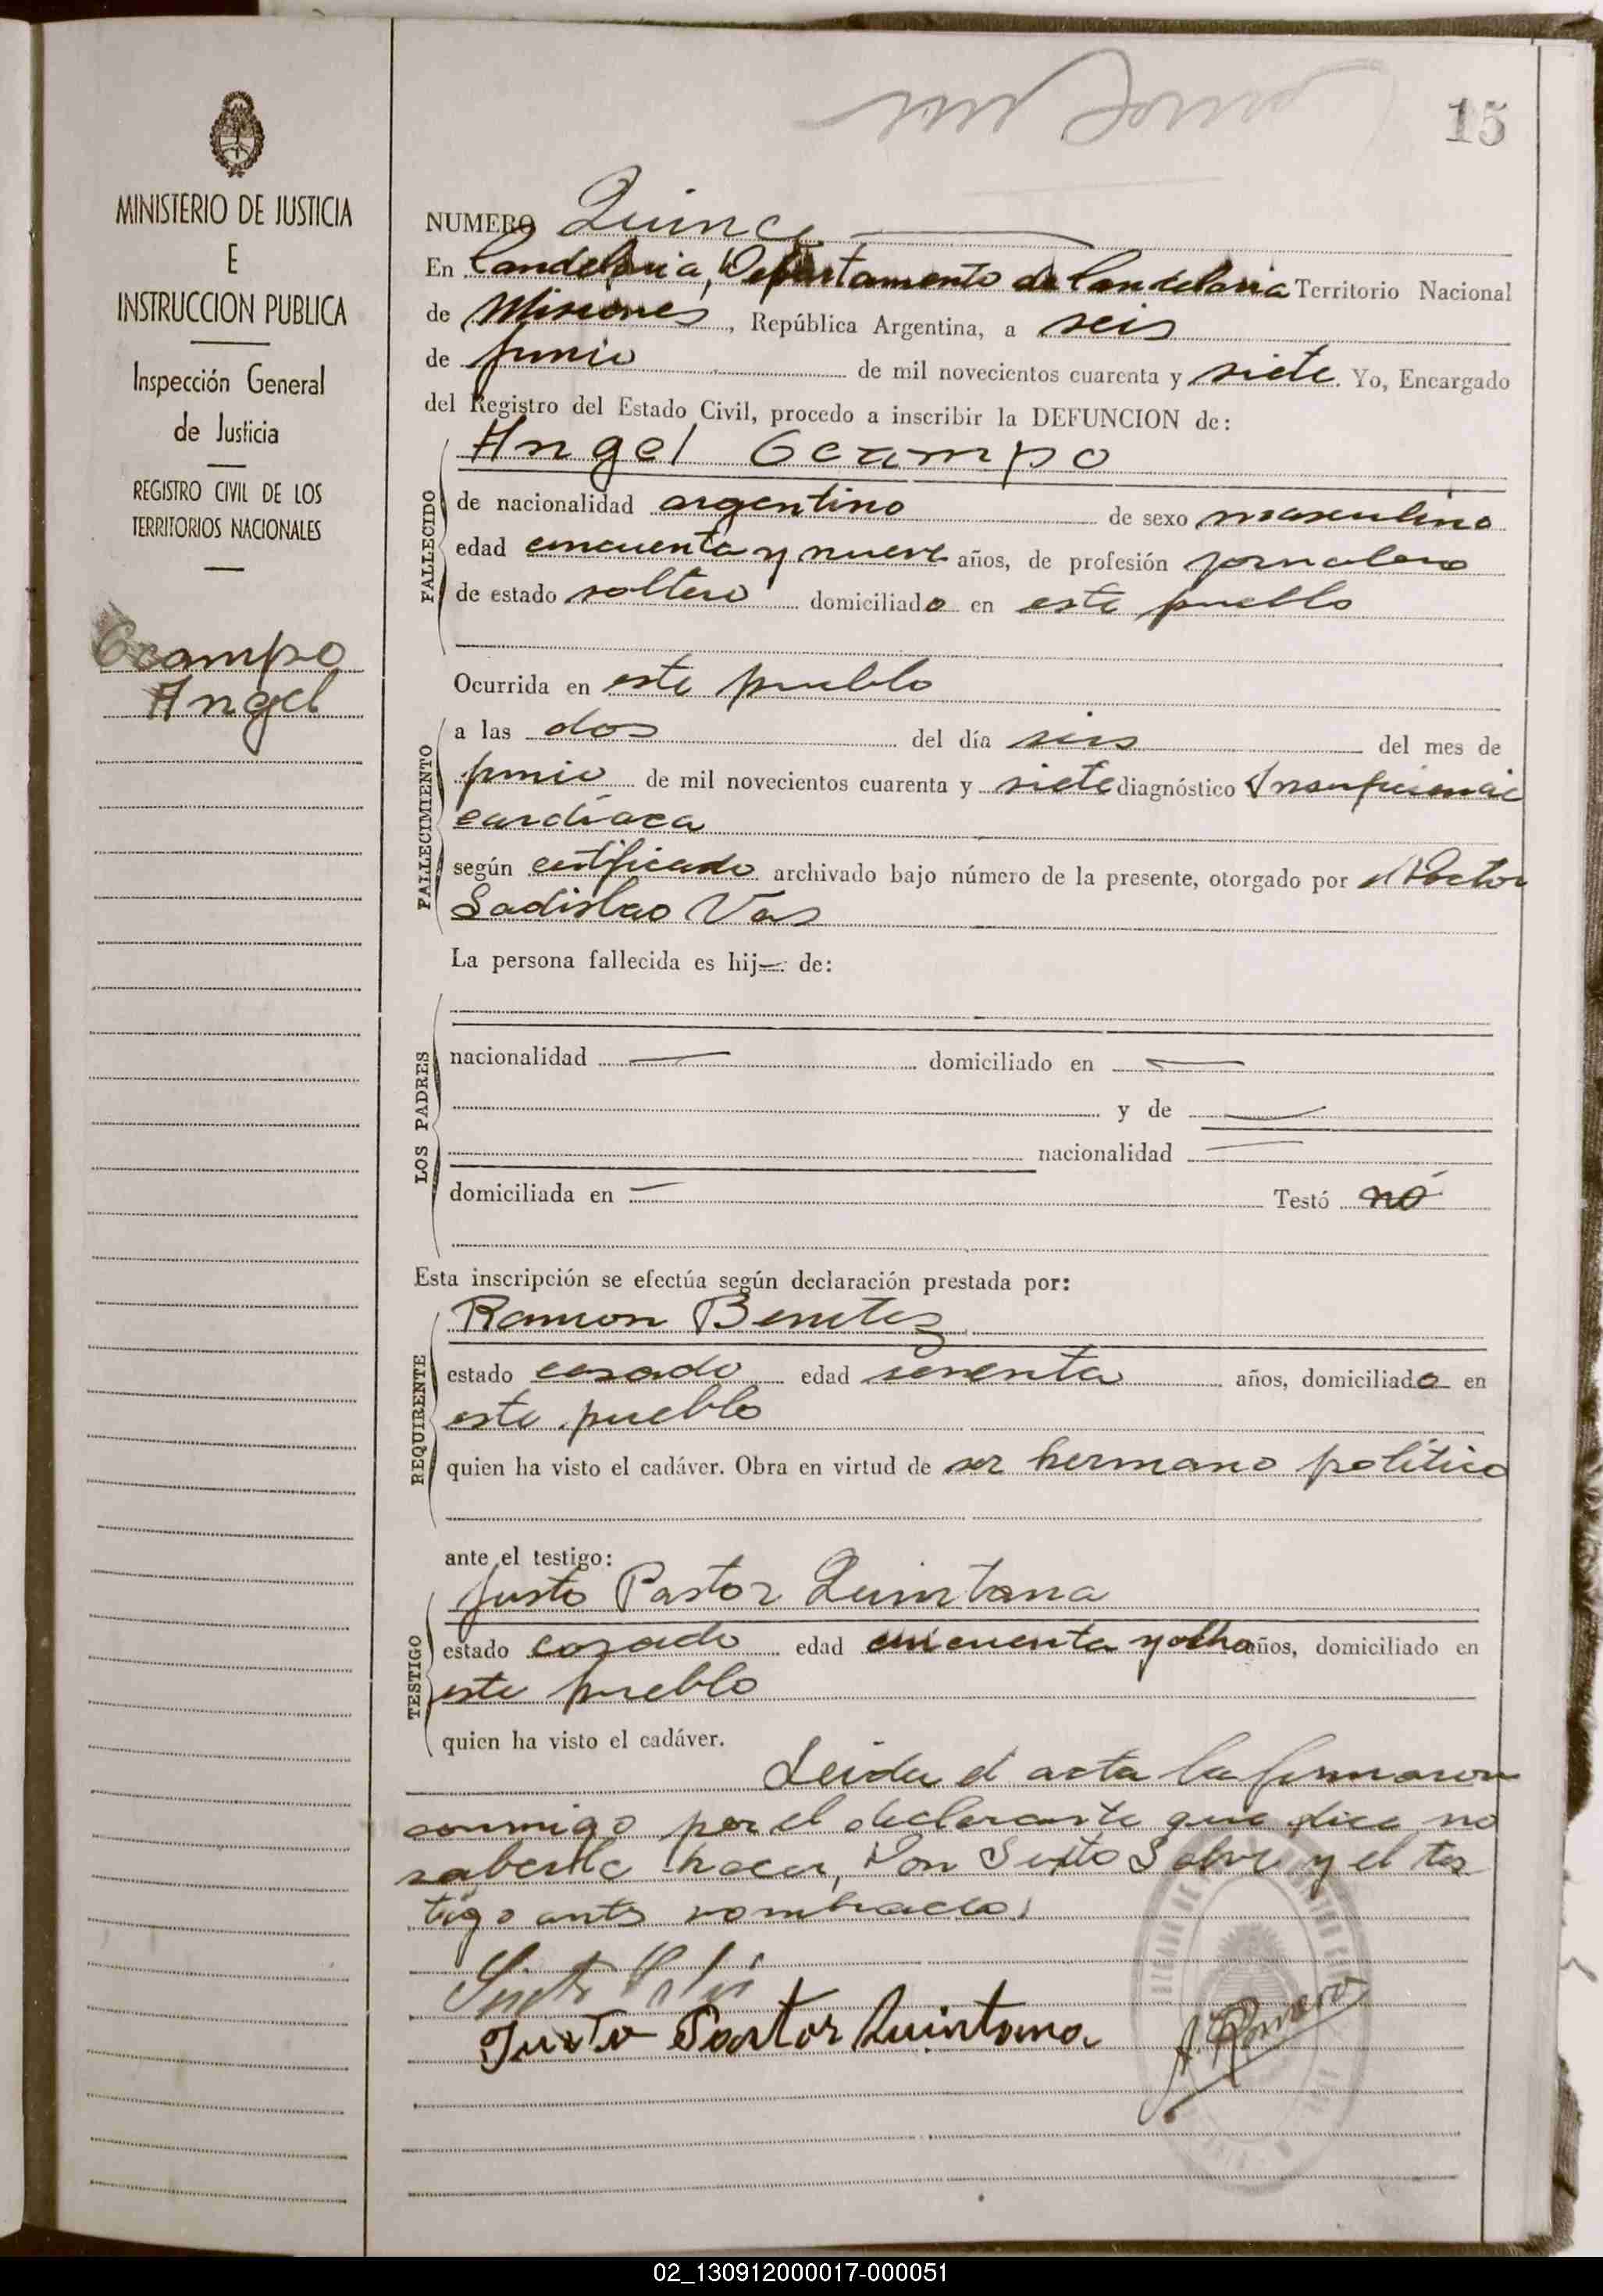 15
MINISTERIO DE JUSTICIA
E
INSTRUCCION PUBLICA
Inspección General
de Justicia
REGISTRO CIVIL DE LOS
TERRITORIOS NACIONALES
Ocampo
Angel
NUMERO Quince
En Candelaria, Departamento de Candelaria Territorio Nacional
de Misiones, República Argentina, a seis
de junio de mil novecientos cuarenta y siete. Yo, Encargado
del Registro del Estado Civil, procedo a inscribir la DEFUNCION de:
Angel Ocampo
FALLECIDO
de nacionalidad argentino de sexo masculino
edad cincuenta y nueve años, de profesión jornalero
de estado soltero domiciliado en este pueblo
Ocurrida en este pueblo
FALLECIMIENTO
a las dos del día seis del mes de
junio de mil novecientos cuarenta y siete diagnóstico Insuficiencia
cardíaca
según certificado archivado bajo número de la presente, otorgado por el Doctor
Ladislao Vas
La persona fallecida es hij de:
LOS PADRES
nacionalidad domiciliado en
y de
nacionalidad
domiciliada en Testó no
Esta inscripción se efectúa según declaración prestada por:
Ramon Benitez
REQUIRENTE
estado casado edad senenta años, domiciliado en
este pueblo
quien ha visto el cadáver. Obra en virtud de ser hermano político
ante el testigo:
Justo Pastor Quintana
TESTIGO
estado casado edad cincuenta y ocho años, domiciliado en
este pueblo
quien ha visto el cadáver.
Leida el acta la firmaron
conmigo por el declarante que dice no
saberlo hacer, Don Sixto y el tes
tigo antes nombrado.
Justo Pastor Quintana
02_130912000017-000051